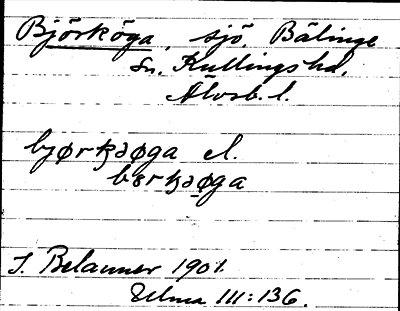 Björköga, sjö. Bälinge
Sn. Kullings hd.
Älvsb. l.
bjørkɜøga el.
bɵrkɜøga
S. Belanner 1901.
Ulma 111:136.